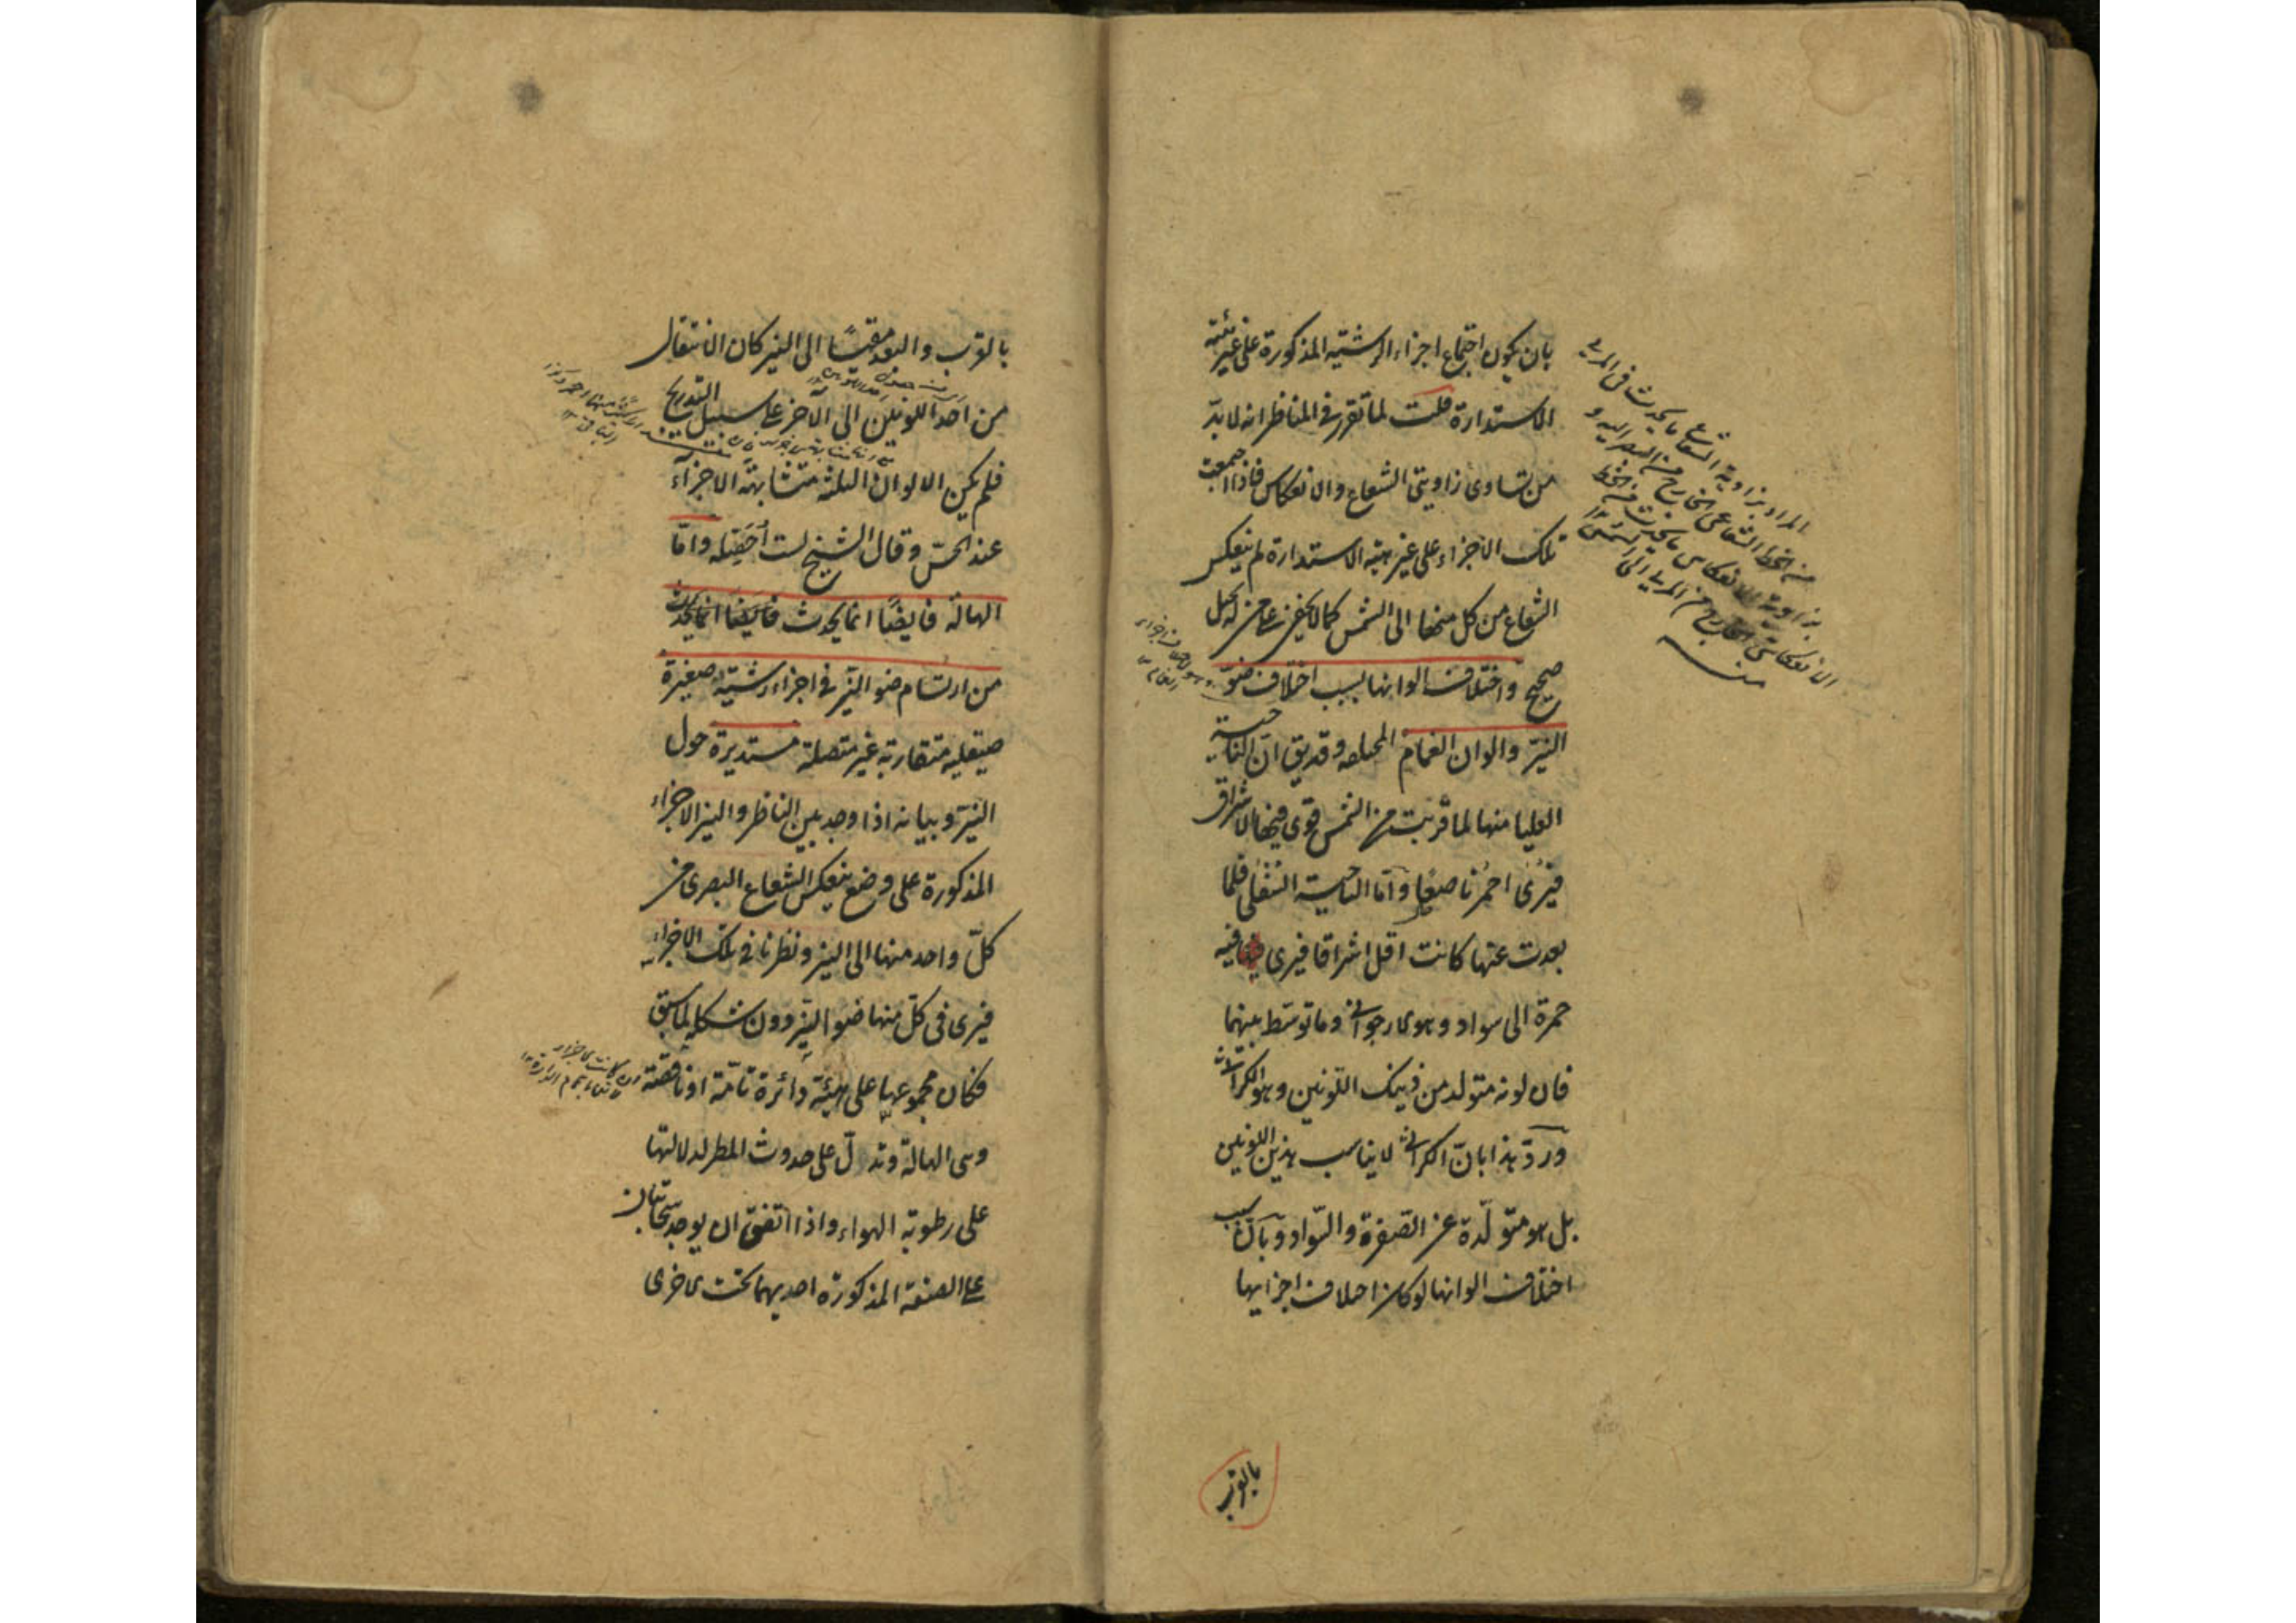 بان يكون اجتماع اجزاء الرشية المذكورة على غير هيئة
الاستدارة قلت لما تقرر في المناظر انه لا بدّ
من تساوى زاويتى الشعاع والانعكاس فاذا اجتمعت
تلك الاجزاء على غير هيئة الاستدارة لم ينعكس
الشعاع من كل منها الى الشمس كما لا يخفى على من له تخيل
صحيح واختلاف الوانها بسبب اختلاف ضوّ
النيّر والوان الغمام المختلفة وقد يق انّ الناحية
العليا منها لما قربت من الشمس قوى فيها الاشراق
فيرى احمر ناصعا وامّا الناحية السفلى فلما
بعدت عنها كانت اقل اشراقا فيرى فيه
حمرة الى سواد وهو الارجوانى وما توسّط بينهما
فان لونه متولد من ذينك اللونين وهو الكراثى
وردّ هذا بانّ الكراثى لا يناسب هذين اللونين
بل هو متولّدة عن الصفرة والسّواد وبانّ سبب
اختلاف الوانها لو كان اختلاف اجزايها
بالقرب
المراد بزاوية الشعاع ما يحدث فى المرايا
من الخط الشعاعى الخارج من البصر اليه و
بزاوية الانعكاس ما يحدث من الخط
الانعكاسى الخارج من المرايا الى الشمس ١٢
منه
بالقرب والبعد مقيسًا الى النير كان الانتقال
من احد اللونين الى الآخر على سبيل التدريج
فلم يكن الالوان الثلثة متشابهة الاجزآء
عند الحسّ وقال الشيخ لست احصّله وامّا
الهالة فايضًا انما يحدث فايضا انما يحدث
من ارتسام ضو النيّر فى اجزاء رشية صغيرة
صيقلية متقاربة غير متصلة مستديرة حول
النيّر وبيانه اذا وجد بين الناظر والنير الاجزاء
المذكورة على وضع ينعكس الشعاع البصرى من
كلّ واحد منها الى النير ونظرنا فى تلك الاجزاء
فيرى فى كلّ منها ضو النيّر دون شكله لما سبق
فكان مجموعها على هيئة دائرة تامّة او ناقصة
وهى الهالة وتدلّ على حدوث المطر لدلالتها
على رطوبة الهواء واذا اتفق ان يوجد سحابتان
على الصفة المذكورة احديهما تحت الاخرى